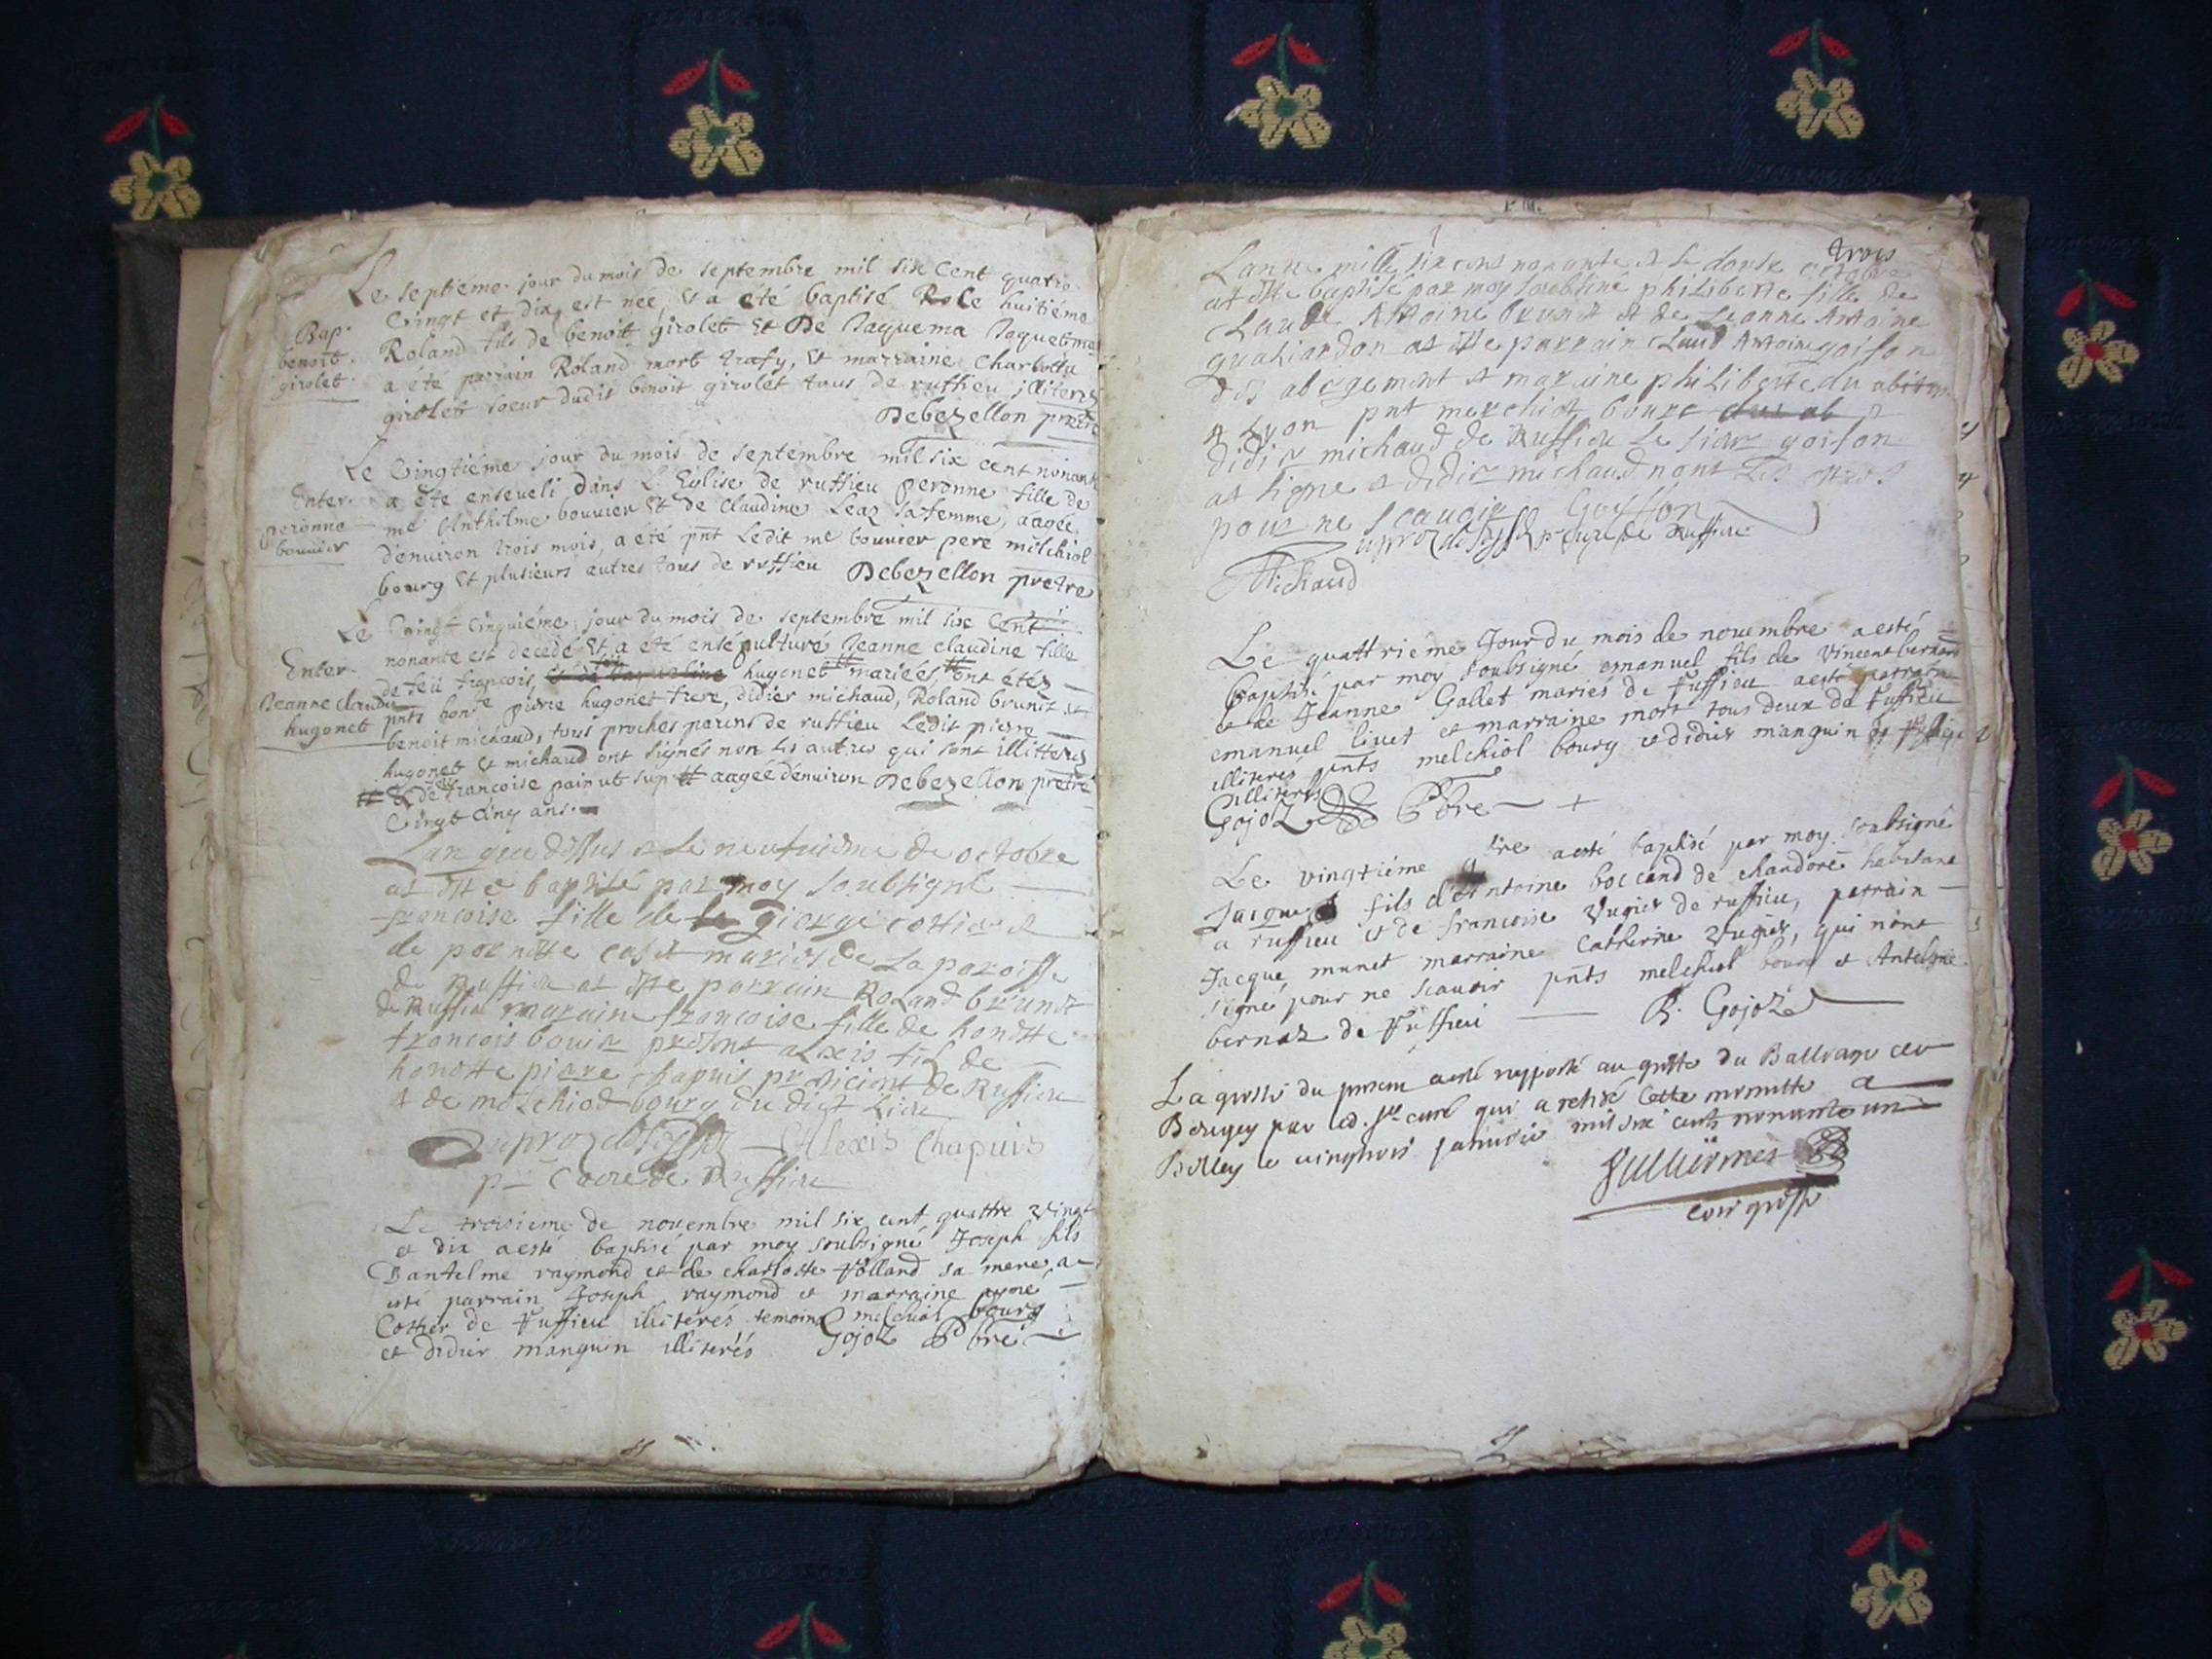 Le septiéme jour du mois de septembre mil six Cent quatre
Vingt et dix, est née, et a été baptisé Le huitiéme
Bap.
benoit
girolet
Roland fils de benoit girolet et De Jaquema
a été parrain Roland mort et marraine Charlotte
girolet soeur dudit benoit girolet tous de ruffieu illiterés
Debezellon prétre
Le Vingtiéme jour du mois de septembre mil six cent nonante
Enter.
peronne
bouvier
a été enseveli dans L'Eglise de ruffieu peronne fille de
me Anthelme bouvier Et de Claudine Leaz sa femme, aagée
d'environ trois mois, a été pnt Ledit me bouvier pere melchiol
bourg Et plusieurs autres tous de ruffieu Debezellon prétre
Le Vingt Cinquiéme jour du mois de septembre mil six Cent
nonante est decedé Et a été ensépulturé Jeanne claudine fille
Enter.
Jeanne claudine
hugonet
de feü françois hugonet mariées, ont étés
pnts pierre hugonet frere, didier michaud, Roland brunet et
benoit michaud, tous proches parens de ruffieu Ledit pierre
hugonet Et michaud ont signés non les autres qui sont illitterez
# & de françoise pain ut sup # aagée d'environ Debezellon prétre
Vingt Cinq ans.
Lan que dessus et le neufviesme de octobre
at este baptisé par moy soubsigné
francoise fille de george cottier et
de pernette mariés de La paroisse
de Ruffieu at este parrain Roland brunet
de Ruffieu maraine francoise fille de honeste
francois bouvier present alexis fils de
honeste piere chapuis praticient de Ruffieu
et de melchiod bourg du dict lieu
Alexis Chapuis
Curé de Ruffieu
Le troisieme de novembre mil six cent quattre Vingt
et dix a esté baptisé par moy soubsigné Joseph fils
D'antelme raymond et de charlotte rolland sa mere, a
esté parrain Joseph raymond et marraine
Cottier de ruffieu illiterés temoins melchiol bourg
et didier manguin illiterés Gojoz Pbre
trois
Lanne mille six cens nonante et le douse octobre
at este baptisé par moy soubsiné philiberte fille de
Claude Antoine brunet et de Jeanne Antoine
at este parrain Claud Antoine goiffon
abergement et maraine philiberte
a Lyon pnt melchiol bourg
didier michaud de Ruffieu Le sieur goiffon
at signe et didier michaud nont les
pour ne scavoir Goiffon
curé de Ruffieu
Michaud
Le quattriéme Jour du mois de novembre a esté
baptisé par moy soubsigné emanuel fils de Vincent bernard
et de Jeanne Gallet mariés de ruffieu a esté parrain
emanuel livet et marraine mort tous deux de ruffieu
illiterés pnts melchiol bourg et didier manguin de ruffieu
illiterés
Gojoz Pbre +
Le vingtiéme a esté baptisé par moy soubsigné
Jacque fils d'Antoine boccand de chandore habitant
a ruffieu et de francoise Vugier de ruffieu, parrain
Jacque munet marraine Catherine Vugier, qui n'ont
signé pour ne scavoir pnts melchiol bourg et Antelme
bernaz de ruffieu R. Gojoz
La grosse du present a esté rapporté au greffe du Balliage de
Beugey par led. sr curé qui a retiré Cette minutte a
Belley le vingtrois janvier mil six cents nonante un
Vulliermes